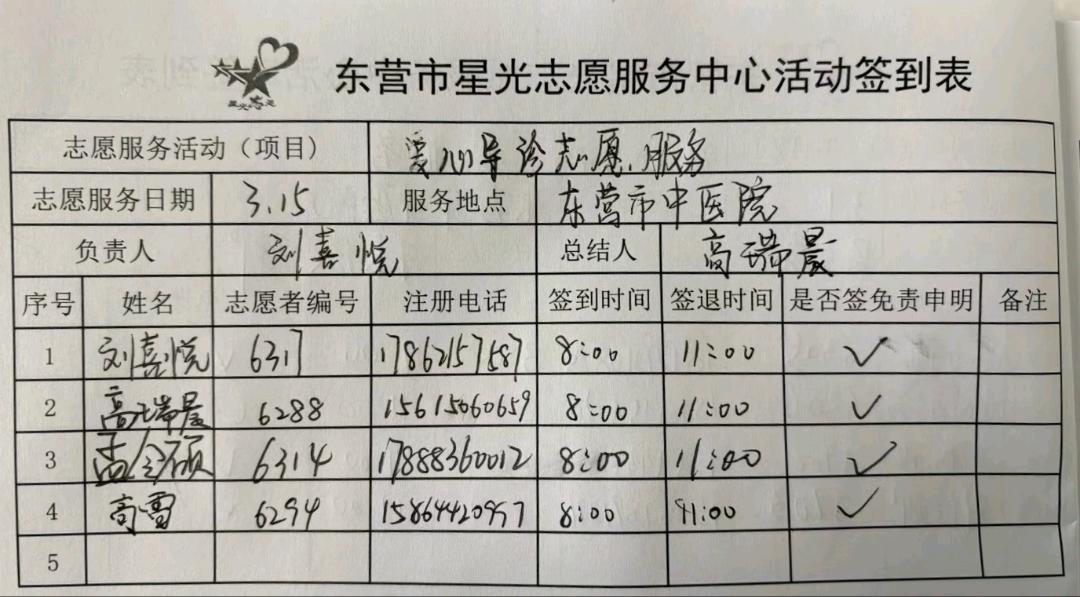 东营市星光志愿服务中心活动签到表
志愿服务活动（项目） 爱心导诊志愿服务
志愿服务日期 3.15 服务地点 东营市中医院
负责人 刘喜悦 总结人 高瑞晨
序号 姓名 志愿者编号 注册电话 签到时间 签退时间 是否签免责申明 备注
1 刘喜悦 6317 17862157587 8:00 11:00 ✓
2 高瑞晨 6288 15615060659 8:00 11:00 ✓
3 孟令硕 6314 17888360012 8:00 11:00 ✓
4 高雪 6294 15864420957 8:00 11:00 ✓
5